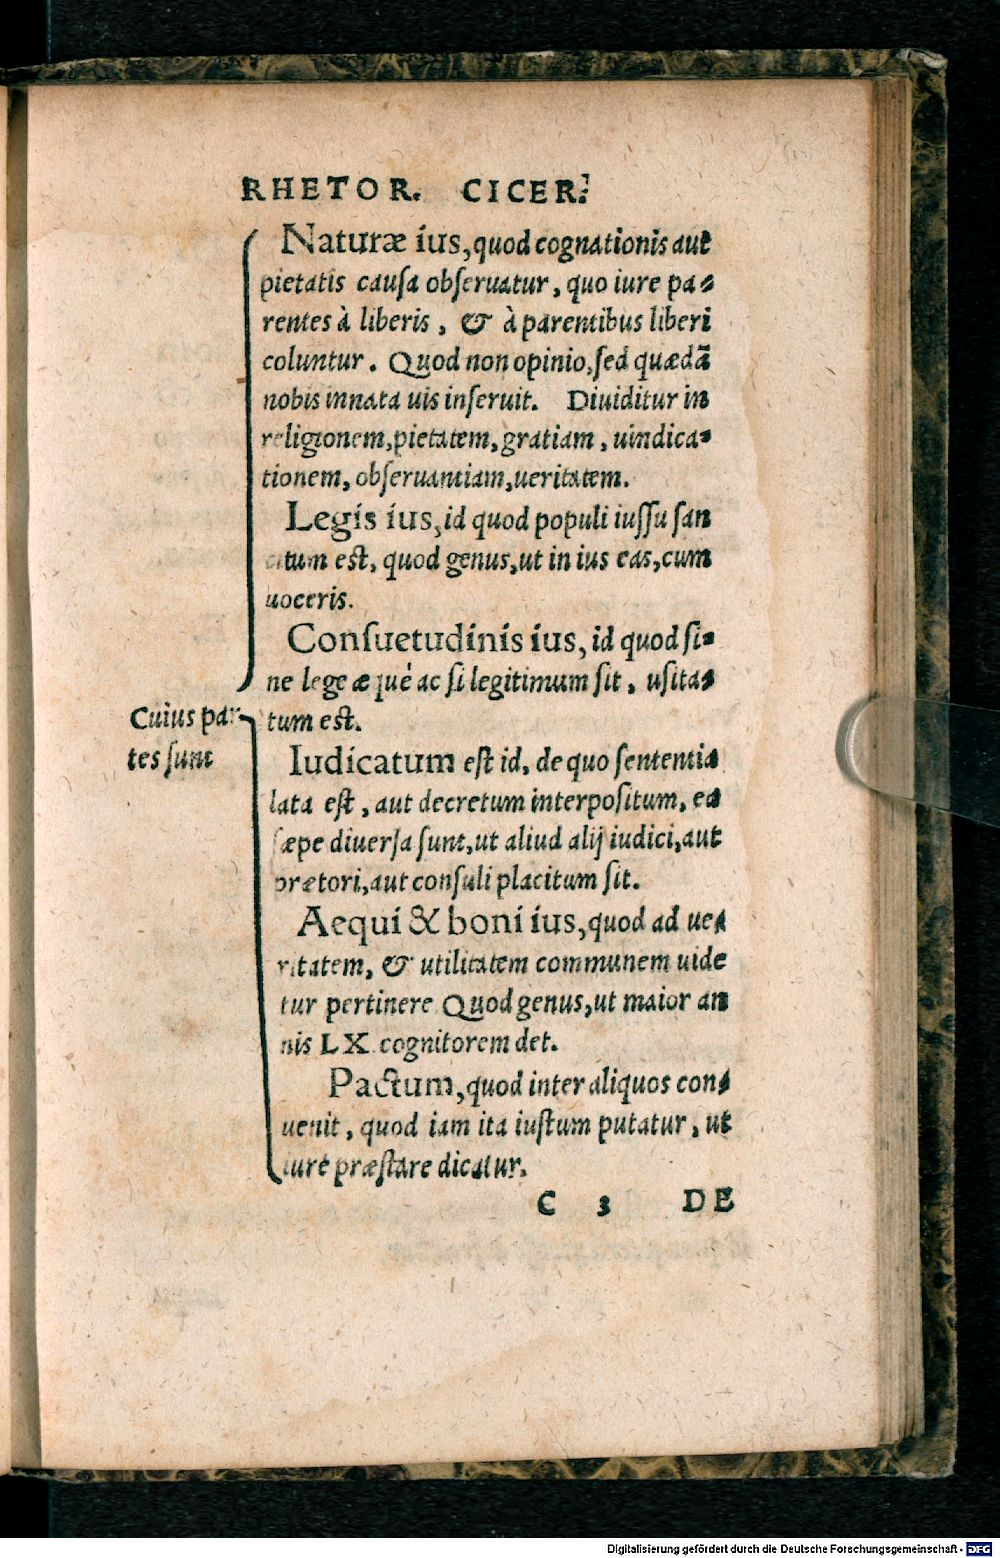 RHETOR. CICER.
Naturæ ius, quod cognationis aut
pietatis causa obseruatur, quo iure pa-
rentes à liberis, & à parentibus liberi
coluntur. Quod non opinio, sed quædā
nobis innata uis inseruit. Diuiditur in
religionem, pietatem, gratiam, uindica-
tionem, obseruantiam, ueritatem.
Legis ius, id quod populi iussu san
citum est, quod genus, ut in ius eas, cum
uoceris.
Consuetudinis ius, id quod si-
ne lege æquè ac si legitimum sit, usita-
Cuius par-
tes sunt
tum est.
Iudicatum est id, de quo sententia
lata est, aut decretum interpositum, ea
sæpe diuersa sunt, ut aliud alij iudici, aut
prætori, aut consuli placitum sit.
Aequi & boni ius, quod ad ue-
ritatem, & utilitatem communem uide
tur pertinere Quod genus, ut maior an
nis LX. cognitorem det.
Pactum, quod inter aliquos con-
uenit, quod iam ita iustum putatur, ut
iure præstare dicatur.
C 3 DE
Digitalisierung gefördert durch die Deutsche Forschungsgemeinschaft - DFG